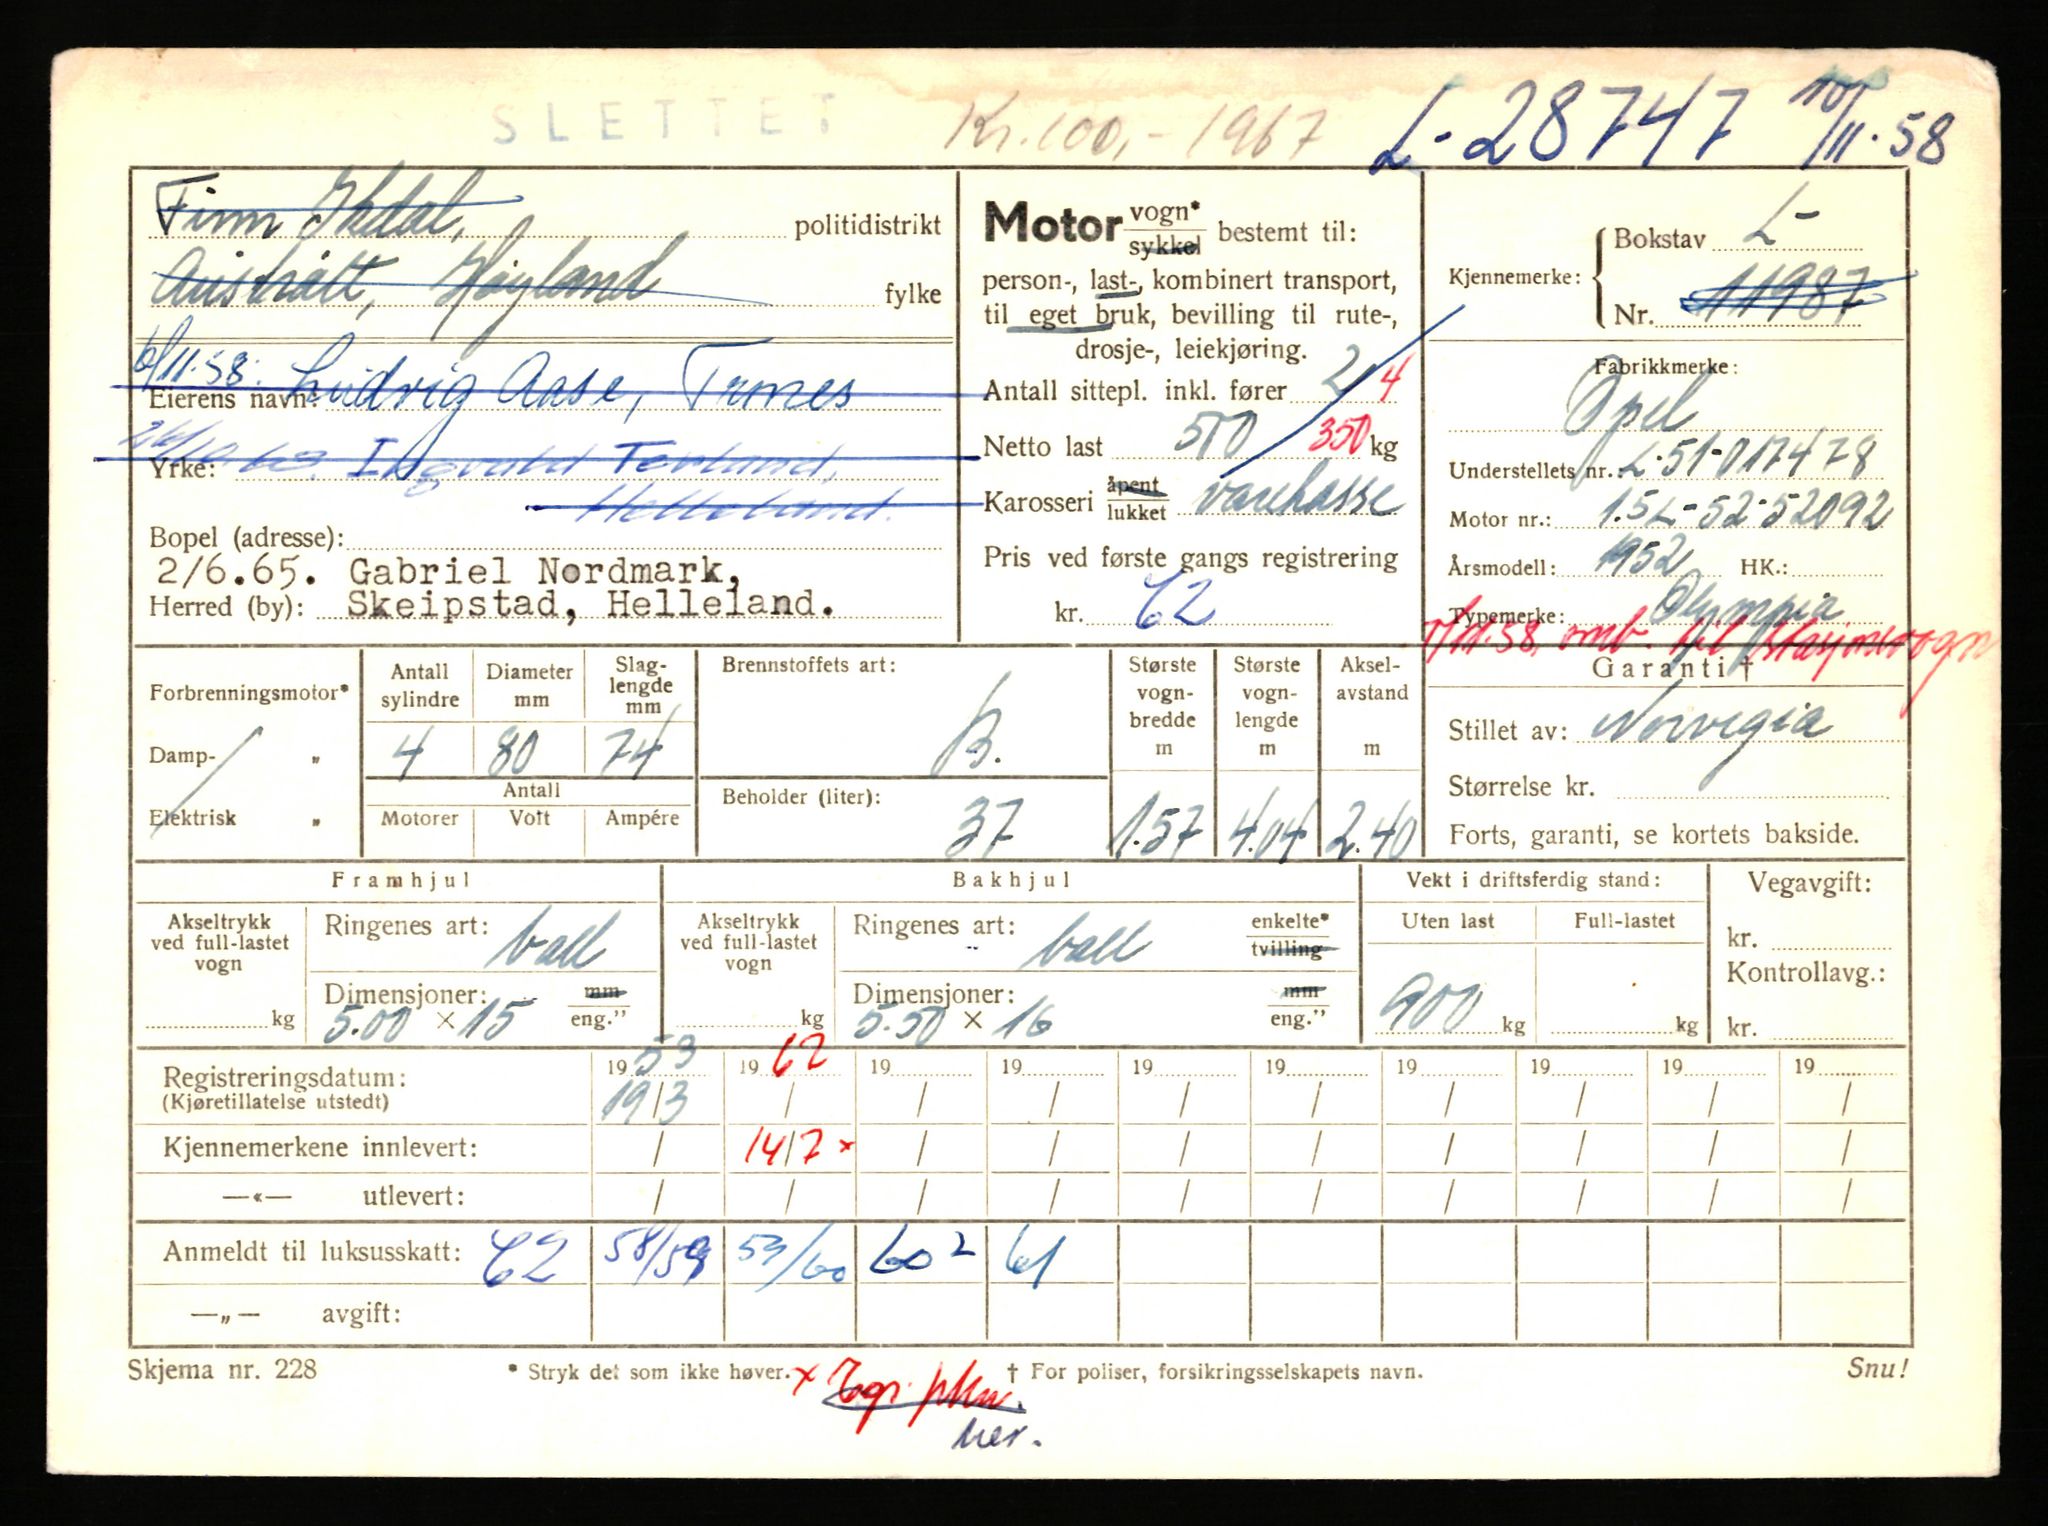 SLETTET Kr. 100,- 1967 L-28747 10/11.58
Finn
politidistrikt
Austrått, Høyland
fylke
6/11.58. Ludvig Aase, Trones
Eierens navn:
Yrke: Ingvald Terland,
Helleland.
Bopel (adresse):
2/6.65. Gabriel Nordmark,
Herred (by): Skeipstad, Helleland.
Motor vogn* sykkel bestemt til:
person-, last-, kombinert transport,
til eget bruk, bevilling til rute-,
drosje-, leiekjøring.
Antall sittepl. inkl. fører 2 4
Netto last 500 350 kg
Karosseri åpent lukket varekasse
Pris ved første gangs registrering
kr. 62
Kjennemerke: Bokstav L-
Nr. 11987
Fabrikkmerke:
Opel
Understellets nr.: L-51-017478
Motor nr.: 1.5L-52-52092
Årsmodell: 1952 HK.:
Typemerke: Olympia
omb. til stasjonsvogn
Forbrenningsmotor*
Damp- „
Elektrisk „
Antall sylindre Diameter mm Slaglengde mm
4 80 74
Antall
Motorer Volt Ampére
Brennstoffets art:
B.
Beholder (liter):
37
Største vognbredde m
1.57
Største vognlengde m
4.04
Akselavstand m
2.40
Garanti †
Stillet av: Norvegia
Størrelse kr.
Forts, garanti, se kortets bakside.
Framhjul
Akseltrykk ved full-lastet vogn
kg
Ringenes art: ball
Dimensjoner: mm
5.00 × 15 eng."
Bakhjul
Akseltrykk ved full-lastet vogn
kg
Ringenes art: ball enkelte* tvilling
Dimensjoner: mm
5.50 × 16 eng."
Vekt i driftsferdig stand:
Uten last Full-lastet
900 kg kg
Vegavgift:
kr.
Kontrollavg.:
kr.
Registreringsdatum: 1953 1962 19 19 19 19 19 19 19 19
(Kjøretillatelse utstedt) 19/3 / / / / / / / / /
Kjennemerkene innlevert: / 14/7 × / / / / / / / /
—«— utlevert: / / / / / / / / / /
Anmeldt til luksusskatt: 62 58/59 59/60 60 2 61
—„— avgift:
Skjema nr. 228 * Stryk det som ikke høver. † For poliser, forsikringsselskapets navn. Snu!
×
her.